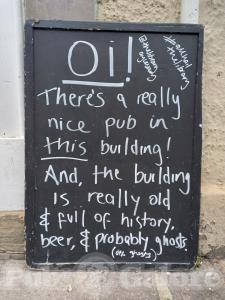 Oi!
There's a really
nice pub in
this building!
And, the building
is really old
& full of history,
beer, & probably ghosts.